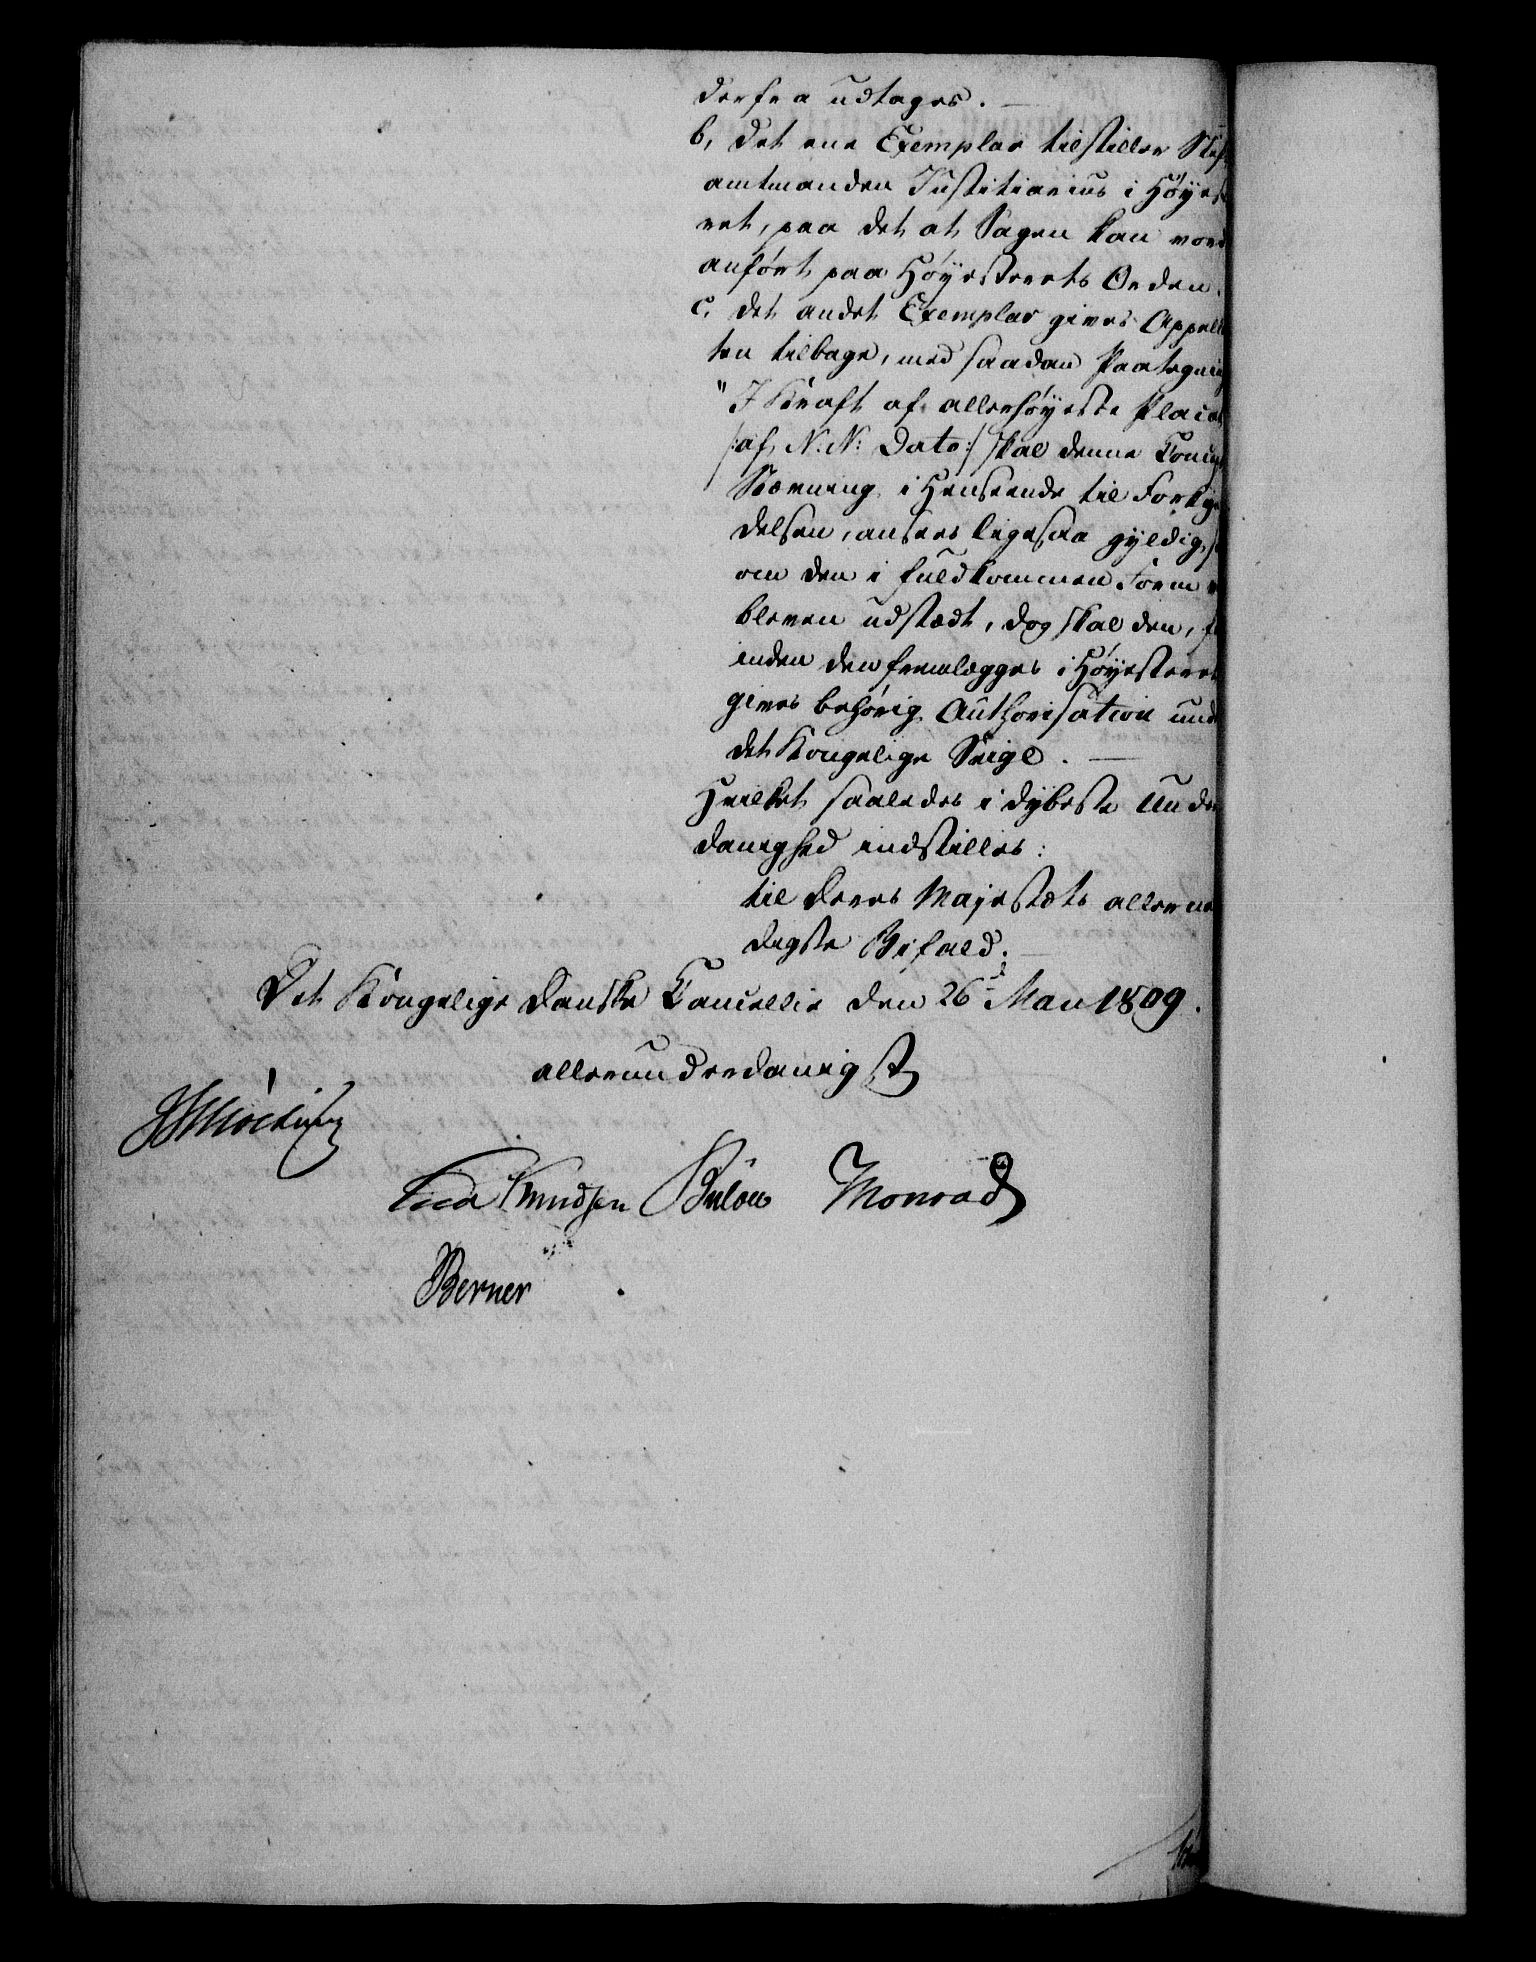 derfra udtages. —
b, det ene Exemplar tilstiller Stif
amtmanden Justitiarius i Høyes
ret, paa det at Sagen kan vord
anført paa Høyesterets Orden.
c, det andet Exemplar gives Appell
ten tilbage, med saadan Paategning
"I Kraft af allerhøyeste Placat
/:af N: N: Dato:/ skal denne Concept
Stævning i Henseende til Forkyn
delsen, ansees ligesaa gyldig, s
om den i fuldkommen Form v
bleven udstædt, dog skal den, f
inden den fremlægges i Høyesteret
gives behørig Authorisation und
det Kongelige Seigl. —
Hvilket saaledes i dybeste Under
danighed indstilles:
til Deres Majestæts allerna
digste Bifald. —
Det Kongelige Danske Cancellie den 26 Mai 1809.
allerunderdanigst
Knudsen Bülow Monrad
Berner